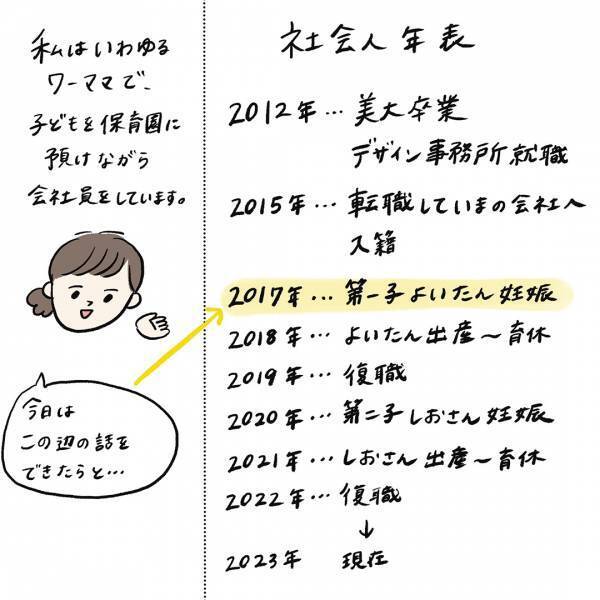 私はいわゆる
ワーママで、
子どもを保育園に
預けながら
会社員をしています。
今日は
この辺の話を
できたらと…
社会人年表
2012年…美大卒業
デザイン事務所就職
2015年…転職していまの会社へ
入籍
2017年…第一子よいたん妊娠
2018年…よいたん出産〜育休
2019年…復職
2020年…第二子しおさん妊娠
2021年…しおさん出産〜育休
2022年…復職
↓
2023年 現在